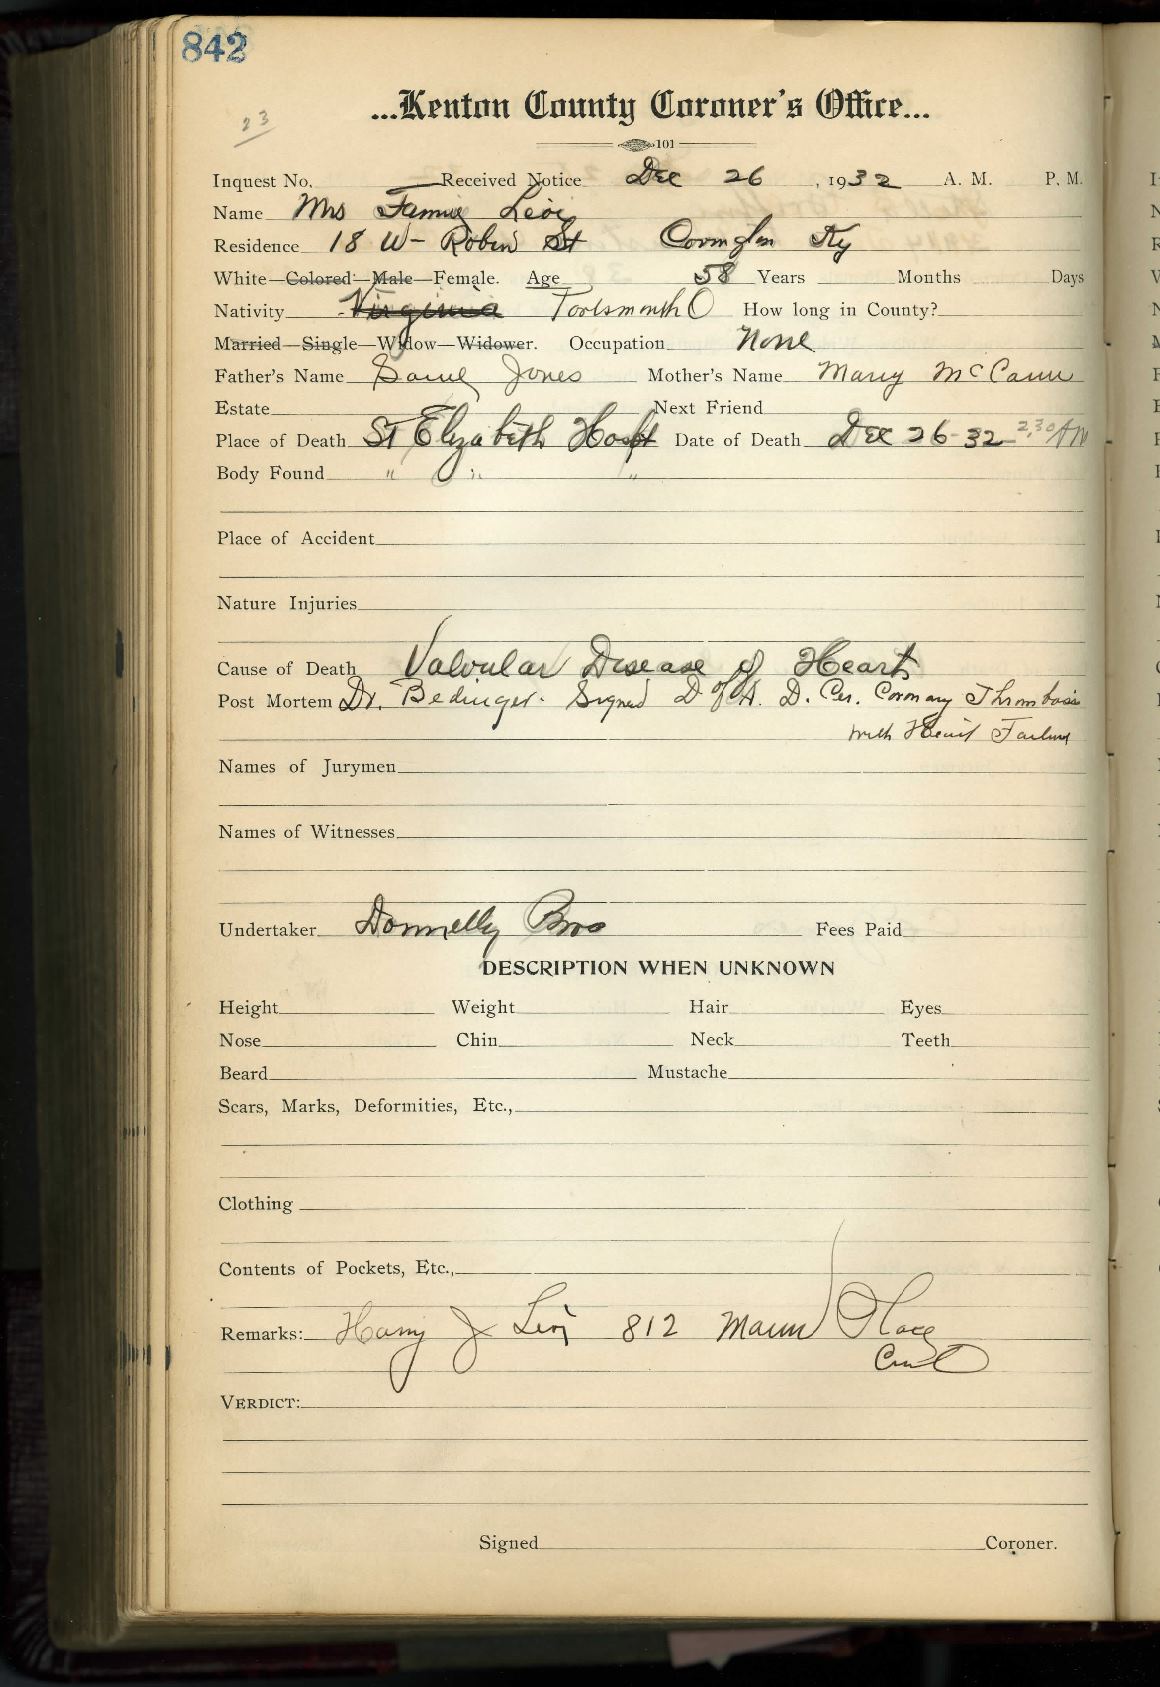 842
...Kenton County Coroner's Office...
23
101
Inquest No. Received Notice Dec 26, 1932 A. M. P. M.
Name Mrs Fannie Levi
Residence 18 W- Robin St Covington Ky
White—Colored—Male—Female. Age 58 Years Months Days
Nativity Virginia Portsmouth O How long in County?
Married—Single—Widow—Widower. Occupation None
Father's Name Jones Mother's Name Mary McCann
Estate Next Friend
Place of Death St Elizabeth Hospt Date of Death Dec 26-32 2,30 AM
Body Found " " "
Place of Accident
Nature Injuries
Cause of Death Valvular Disease of Heart
Post Mortem Dr. Bedinger. Signed D. Cer. Coronary Thrombosis
with Heart Failure
Names of Jurymen
Names of Witnesses
Undertaker Donnelly Bros Fees Paid
DESCRIPTION WHEN UNKNOWN
Height Weight Hair Eyes
Nose Chin Neck Teeth
Beard Mustache
Scars, Marks, Deformities, Etc.,
Clothing
Contents of Pockets, Etc.,
Remarks: Harry J Levi 812 Mann Place
Cint O
VERDICT:
Signed Coroner.